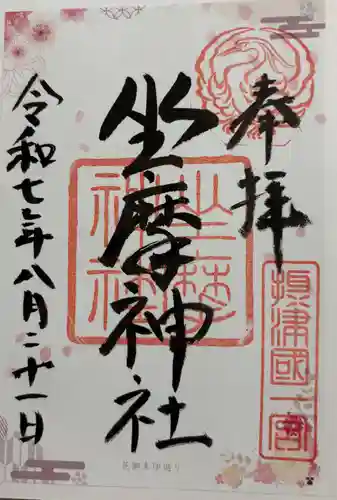 奉拝
摂津國一宮
坐摩神社
坐摩神社
令和七年八月二十一日